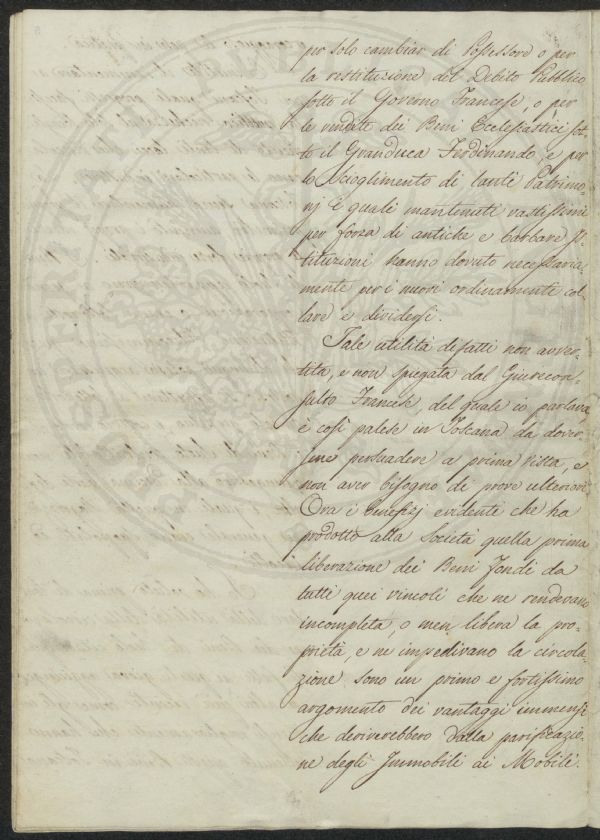 per solo cambiar di Possessore o per
la restituzione del Debito Pubblico
sotto il Governo Francese, o per
le vendite dei Beni Ecclesiastici sot-
to il Granduca Ferdinando, e per
lo scioglimento di tanti Patrimo-
nj i quali mantenuti vastissimi
per forza di antiche e barbare Is-
tituzioni hanno dovuto necessaria-
mente per i nuovi ordinamenti col-
lare e dividersi.
Tale utilità difatti non avver-
tita, e non spiegata dal Giurecon-
sulto Francese, del quale io parlava,
è così palese in Toscana da dover-
sene persuadere a prima vista, e
non aver bisogno di prove ulteriori
Ora i benefizj evidenti che ha
prodotto alla Società quella prima
liberazione dei Beni fondi da
tutti quei vincoli che ne rendevano
incompleta, o men libera la pro-
prietà, e ne impedivano la circola-
zione sono un primo e fortissimo
argomento dei vantaggi immensi
che deriverebbero dalla parificazio-
ne degli Immobili ai Mobili.